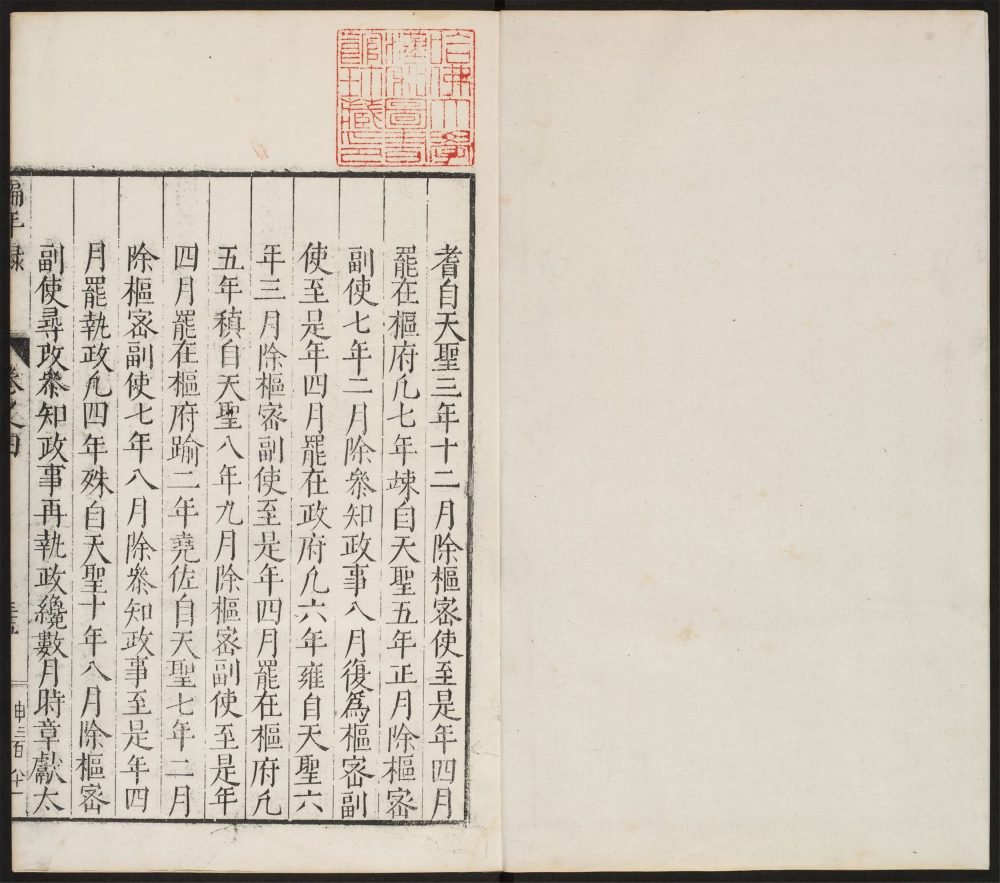 哈佛大學
漢和圖書
館珍藏印
耆自天聖三年十二月除樞密使至是年四月
罷在樞府凢七年竦自天聖五年正月除樞密
副使七年二月除叅知政事八月復爲樞密副
使至是年四月罷在政府凢六年雍自天聖六
年三月除樞密副使至是年四月罷在樞府凢
五年稹自天聖八年九月除樞密副使至是年
四月罷在樞府踰二年堯佐自天聖七年二月
除樞密副使七年八月除叅知政事至是年四
月罷執政凢四年殊自天聖十年八月除樞密
副使尋改叅知政事再執政纔數月時章獻太
編年録
卷之四
申三百